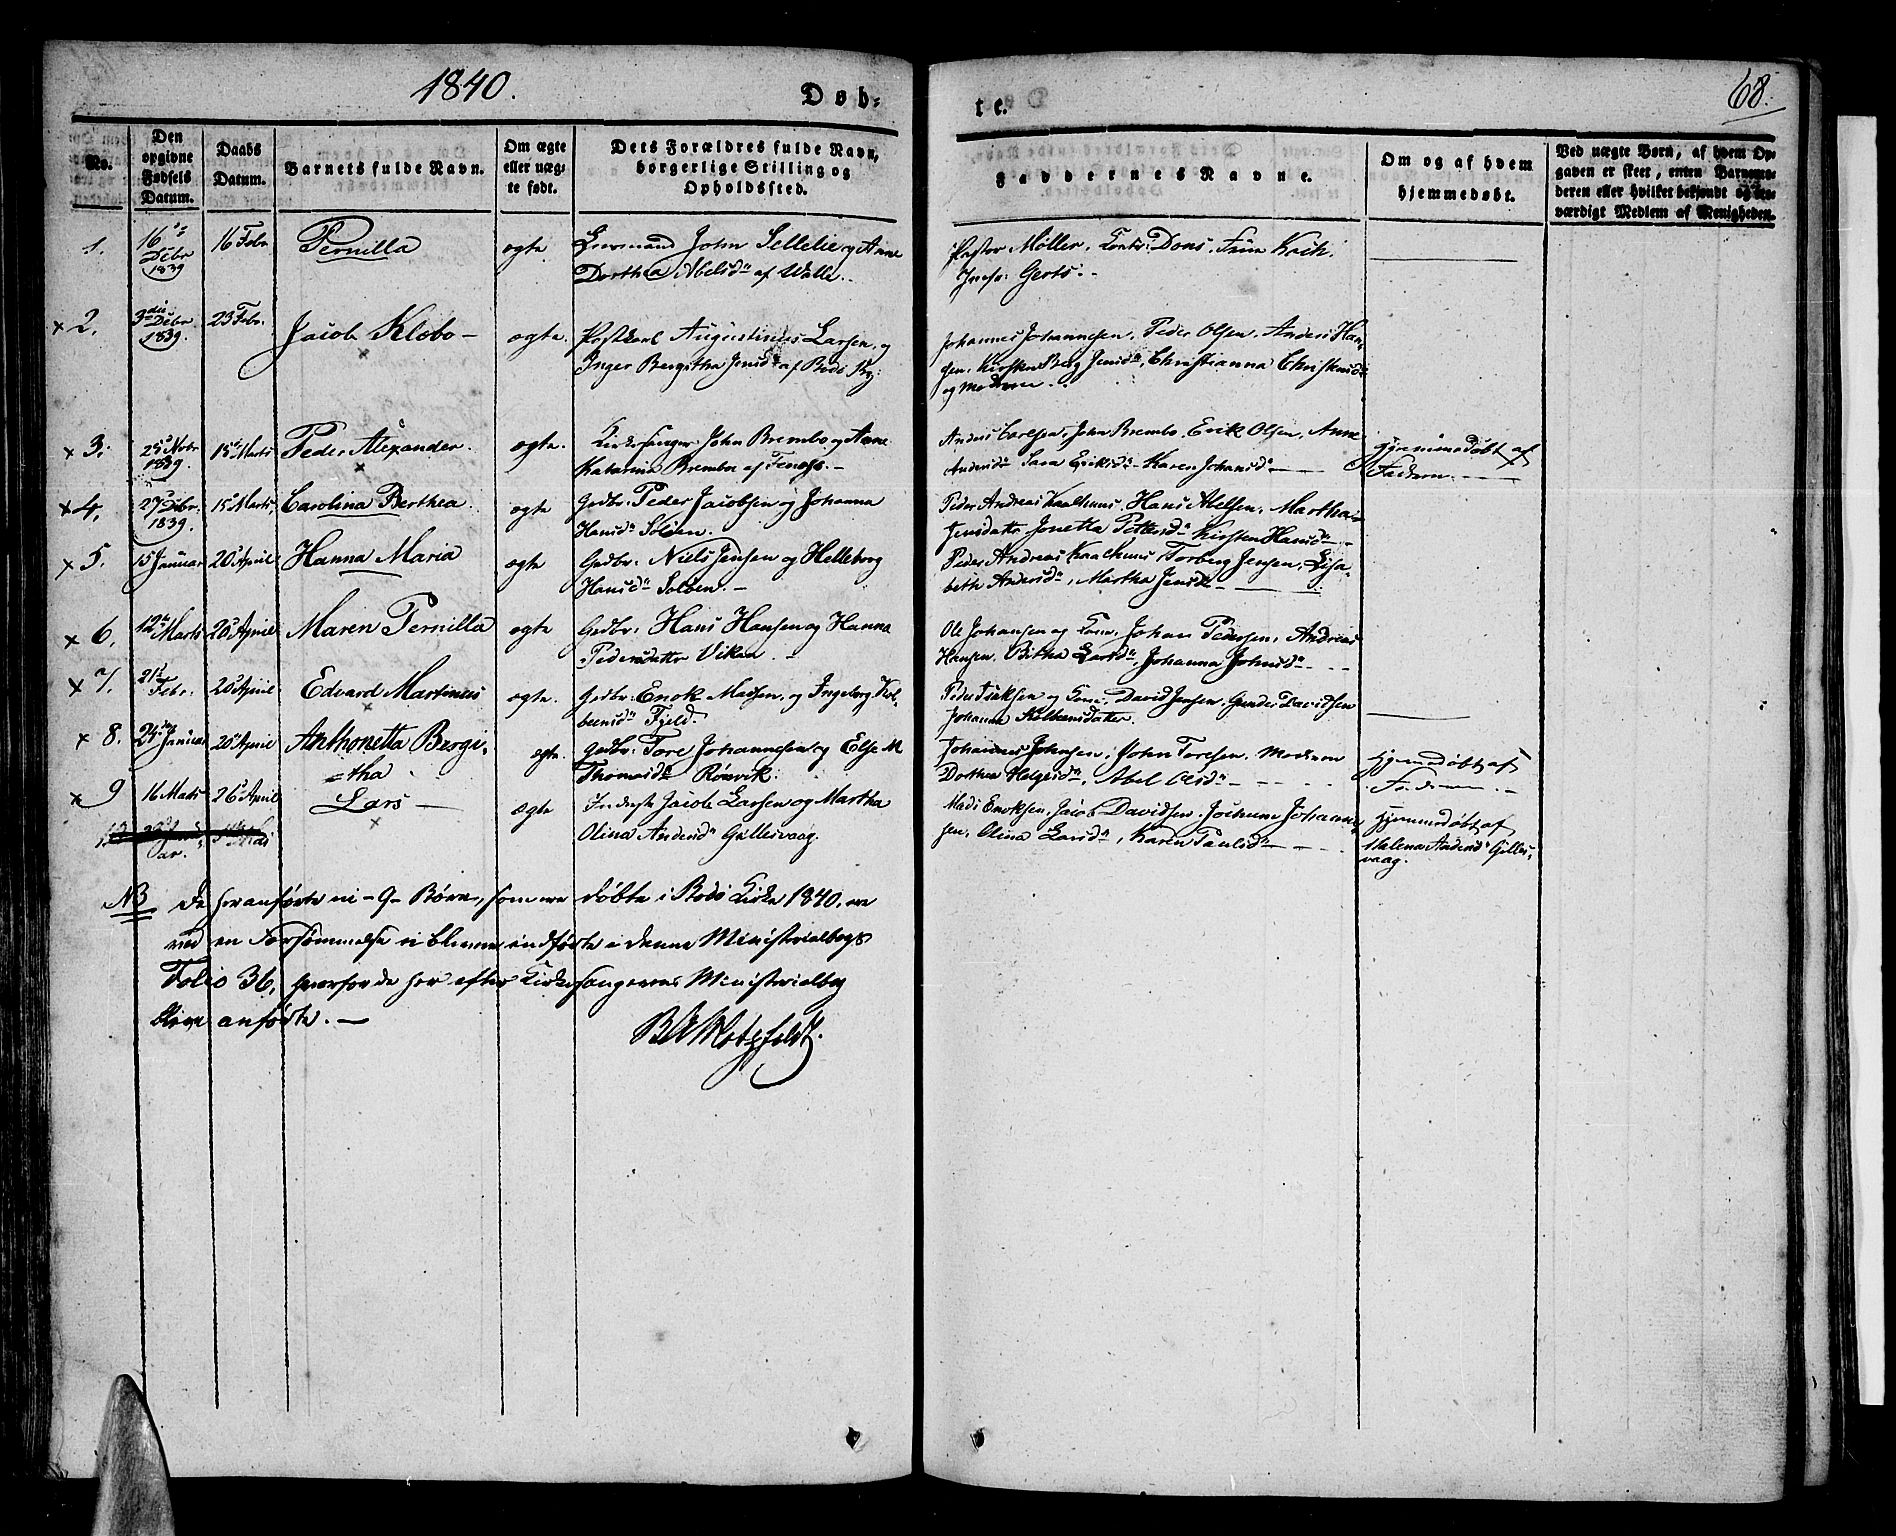 1840.
Døb-
te.
68.
No.
Den opgivne Fødsels Datum.
Daabs Datum.
Barnets fulde Navn.
Om ægte eller uægte født.
Dets Forældres fulde Navn, borgerlige Stilling og Opholdssted.
Faddernes Navne.
Om og af hvem hjemmedøbt.
Ved uægte Børn, af hvem Opgaven er skeet, enten Barnemoderen eller hvilket bekjendt og troværdigt Medlem af Menigheden.
1. 16 Debr 1839 16 Febr Pernilla ægte John Sellelie og Anne
Dorthea Abelsdr af Walle.
Pastor Møller, Dons, Frue Koch,
Gerts.
x 2. 3die Debr. 1839. 23 Febr. Jacob Klæbo ægte. Postkarl Augustinus Larsen og
Inger Bergitha Jensdr af Bodø By.
Johannes Johannesen, Peder Olsen, Anders Han-
sen, Kirsten Berg Jensdr, Christianna
og Moderen.
x 3. 25 Novbr 1839. 15 Marts Peder Alexander. ægte. Kirkesanger John Brembo og Anne
Katarina Brembo af
Anders Carlsen, John Brembo, Erik Olsen, Anne
Andersdr Sara Eriksdr Karen Johansdr
Hjemmedøbt af
Faderen.
x 4. 27 Debr. 1839. 15 Marts Carolina Berthea ægte Gedbr: Peder Jacobsen og Johanna
Hansdr Soløen.
Peder Andreas Kaalhuus, Hans Abelsen, Martha
Jensdatter Jonetta Pettersdr Kirsten Hansdr
x 5. 15 Januar 20 April Hanna Maria ægte Gedbr: Niels Jensen og Helleborg
Hansdr Soløen.
Peder Andreas Kaalhuus, Torberg Jensen, Lisa-
beth Andersdr, Martha Jensdr
x 6. 12 Marts 20 April Maren Pernilla ægte Gedbr: Hans Hansen og Hanna
Pedersdatter Viken
Ole Johansen og Kone, Johan Pedersen, Andreas
Hansen, Larsdr, Johanna Johnsdr
x 7. 21 Febr. 20 April Edvard Martinus ægte. Gedbr: Enok Madsen og Ingeborg Kol-
beensdr Fjeld.
Peder Isaksen og Kone, David Jensen, Gunder Davidsen
Johanna Kolbensdatter.
x 8. 24 Januar 20 April Anthonetta Bergi-
tha ægte. Gedbr: Tore Johannesen og Else M
Thomasdr Rønvik.
Johannes Johnsen, John Toresen, Moderen
Dorthea Helgesdr, Abel Olsdr
Hjemmedøbt af
Faderen.
x 9 16 Marts 26 April Lars ægte Inderste Jacob Larsen og Martha
Olina Andersdr Gillesvaag.
Mads Enoksen, Jacob Davidsen, Jochum Johanne-
sen, Olina Larsdr, Karen Paulsdr
Hjemmedøbt af
Malena Andersdr Gilles-
vaag.
NB De her anførte ni - 9 - Børn, som ere døbte i Bodø Kirke 1840, ere
ved en Forsømmelse ei blevne indførte i denne Ministerialbogs
Folio 36, hvorfor de her efter Kirkesangerens Ministerialbog
blive anførte.